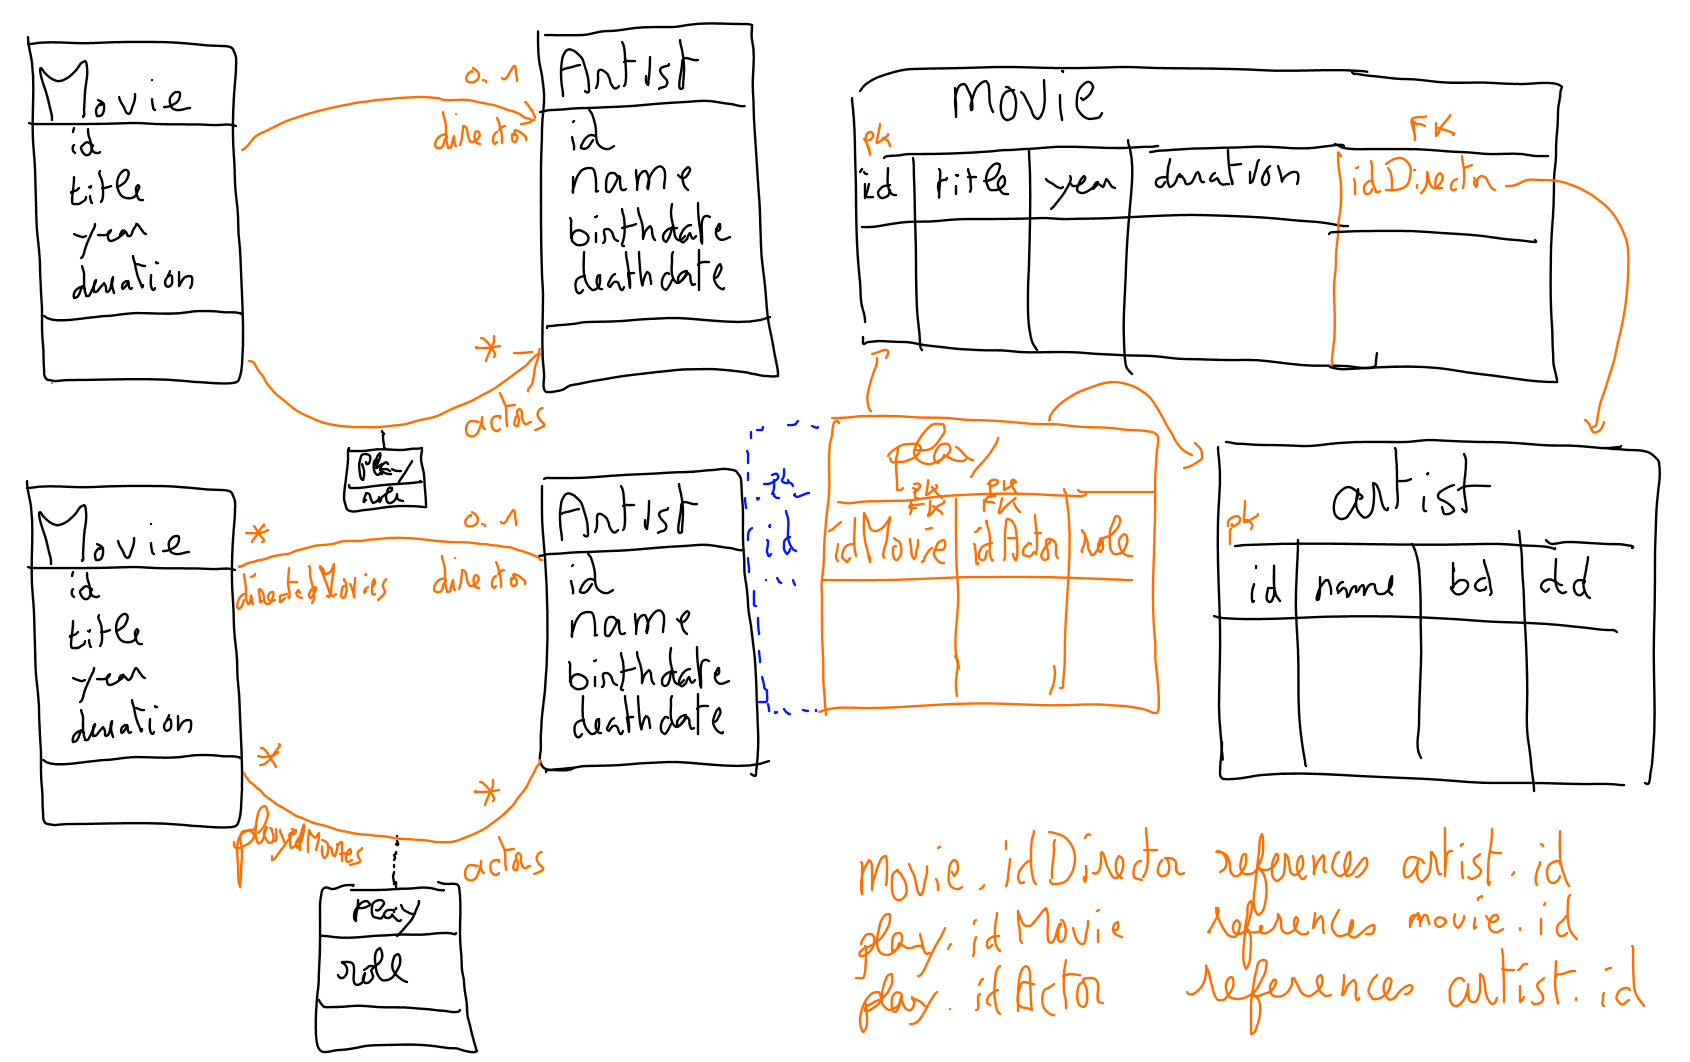 Movie
id
title
year
duration
0..1
director
*
actors
play
role
Artist
id
name
birthdate
deathdate
Movie
id
title
year
duration
*
directedMovies
0..1
director
*
playedMovies
*
actors
play
role
Artist
id
name
birthdate
deathdate
movie
pk FK
id title year duration idDirector
pk
id
play
pk pk
FK FK
idMovie idActor role
artist
pk
id name bd dd
movie.idDirector references artist.id
play.idMovie references movie.id
play.idActor references artist.id